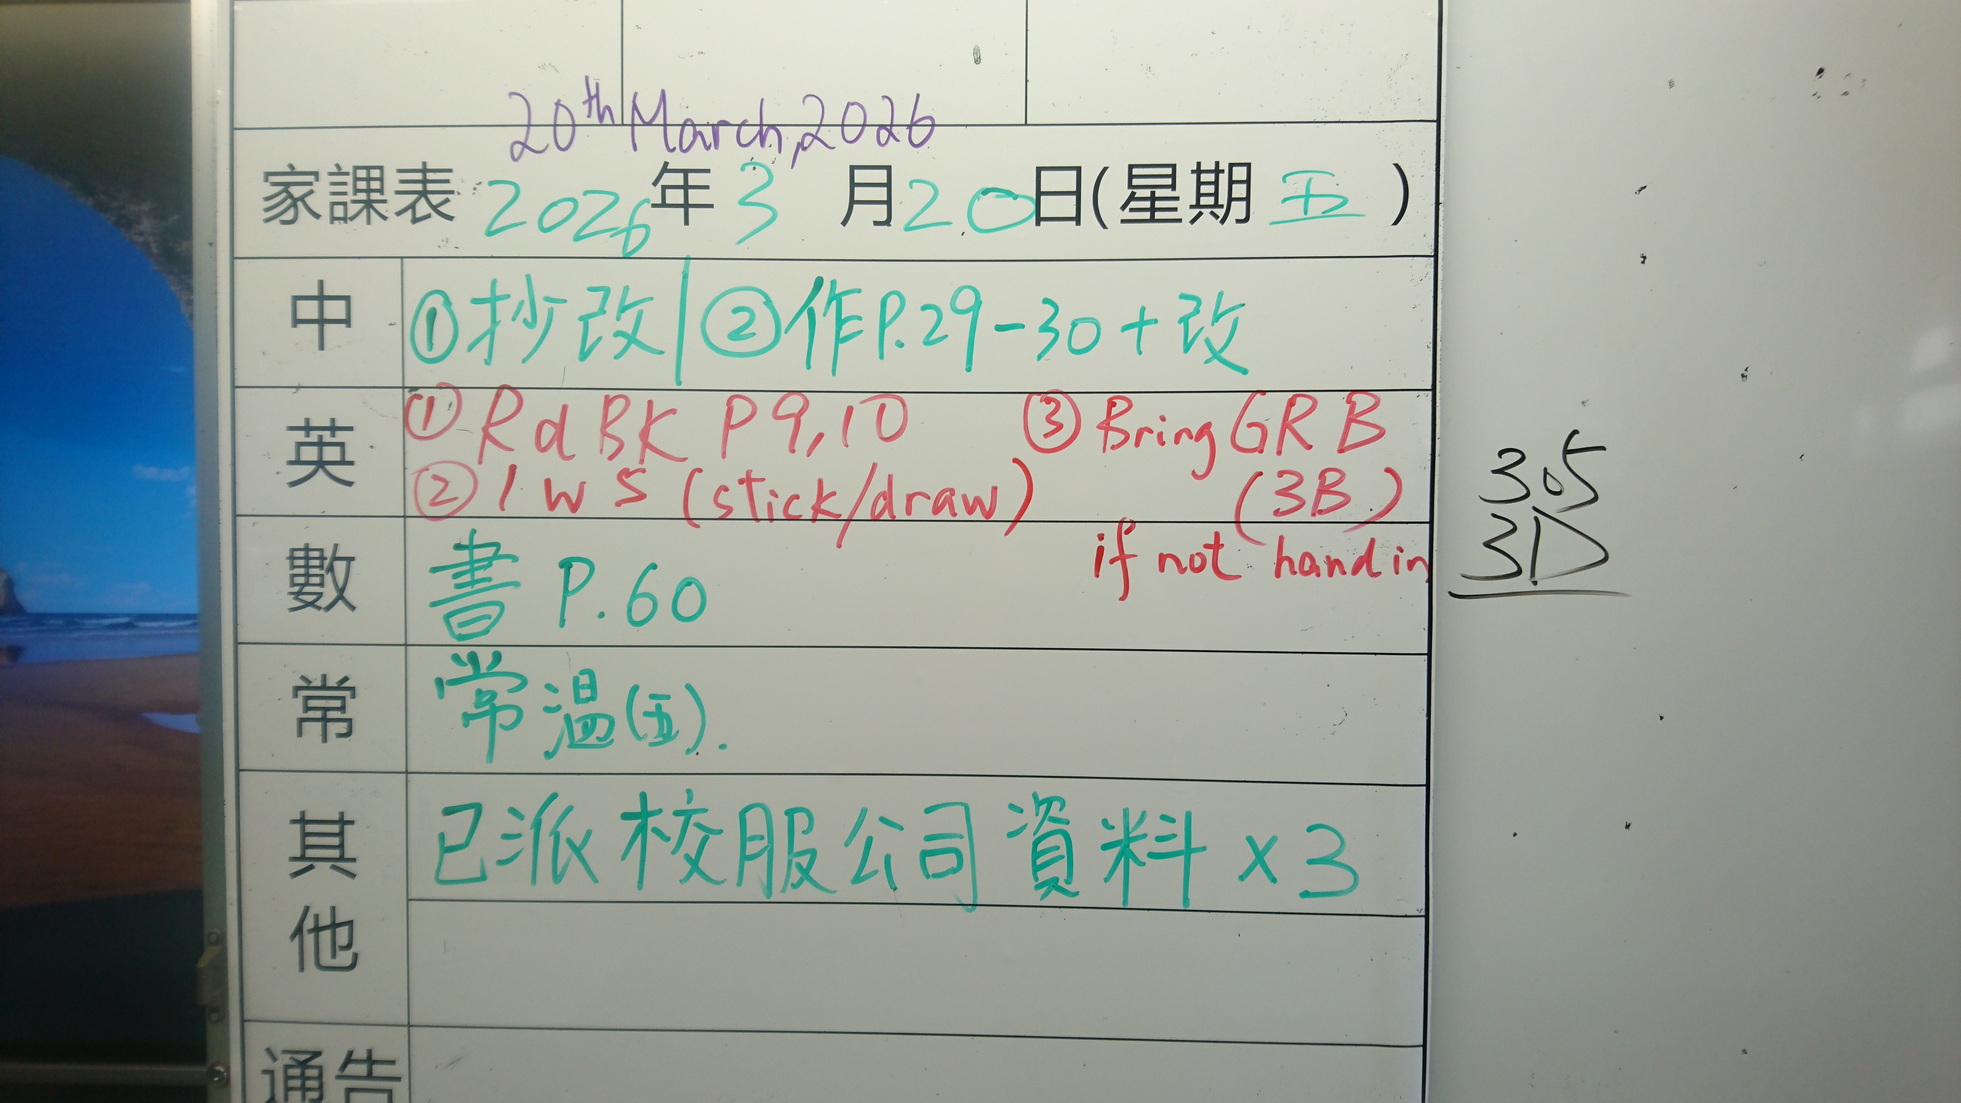 20th March, 2026
家課表 2026年3月20日(星期五)
中 ①抄改|②作P.29-30+改
英 ①Rd BK P9,10 ③Bring GRB
②1 WS (stick/draw) (3B)
if not hand in
數 書 P.60
常 常溫(五).
其他 已派校服公司資料x3
通告
305
3D